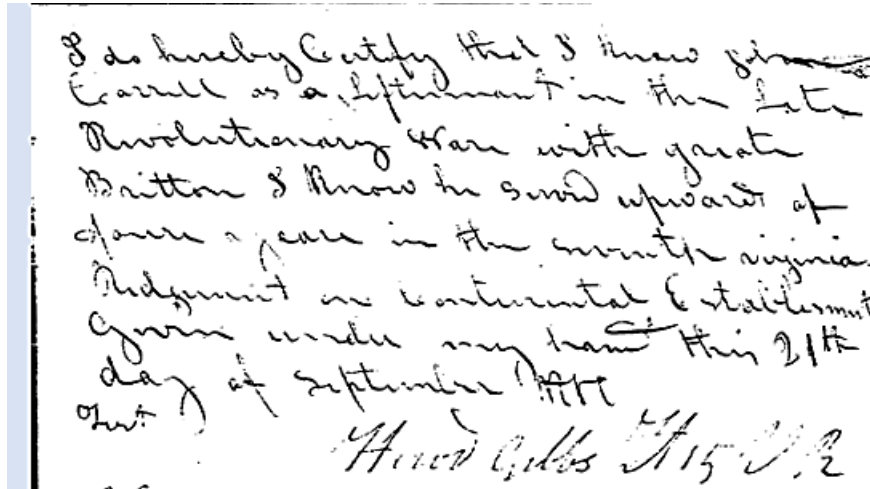 I do hereby Certify that I Know John
Carrell as a Leftennant in the Late
Revolutionary Ware with greate
Britton I Know he servd upwards of
yeare in the seventh virginia
Ridgment on Continental Establesment
Given under my hand this 21th
day of September
Test
Herod Gibbs Lt 15 V. R